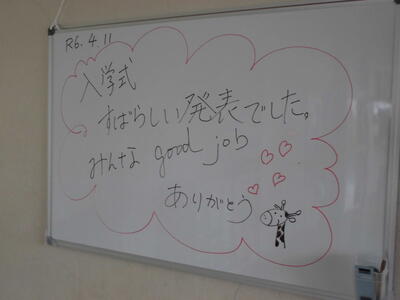 R6.4.11
入学式
すばらしい発表でした。
みんな good job
ありがとう